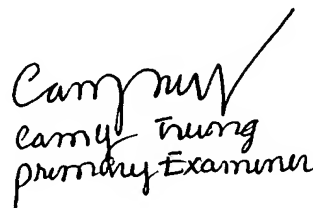 camy Trung
primary Examiner